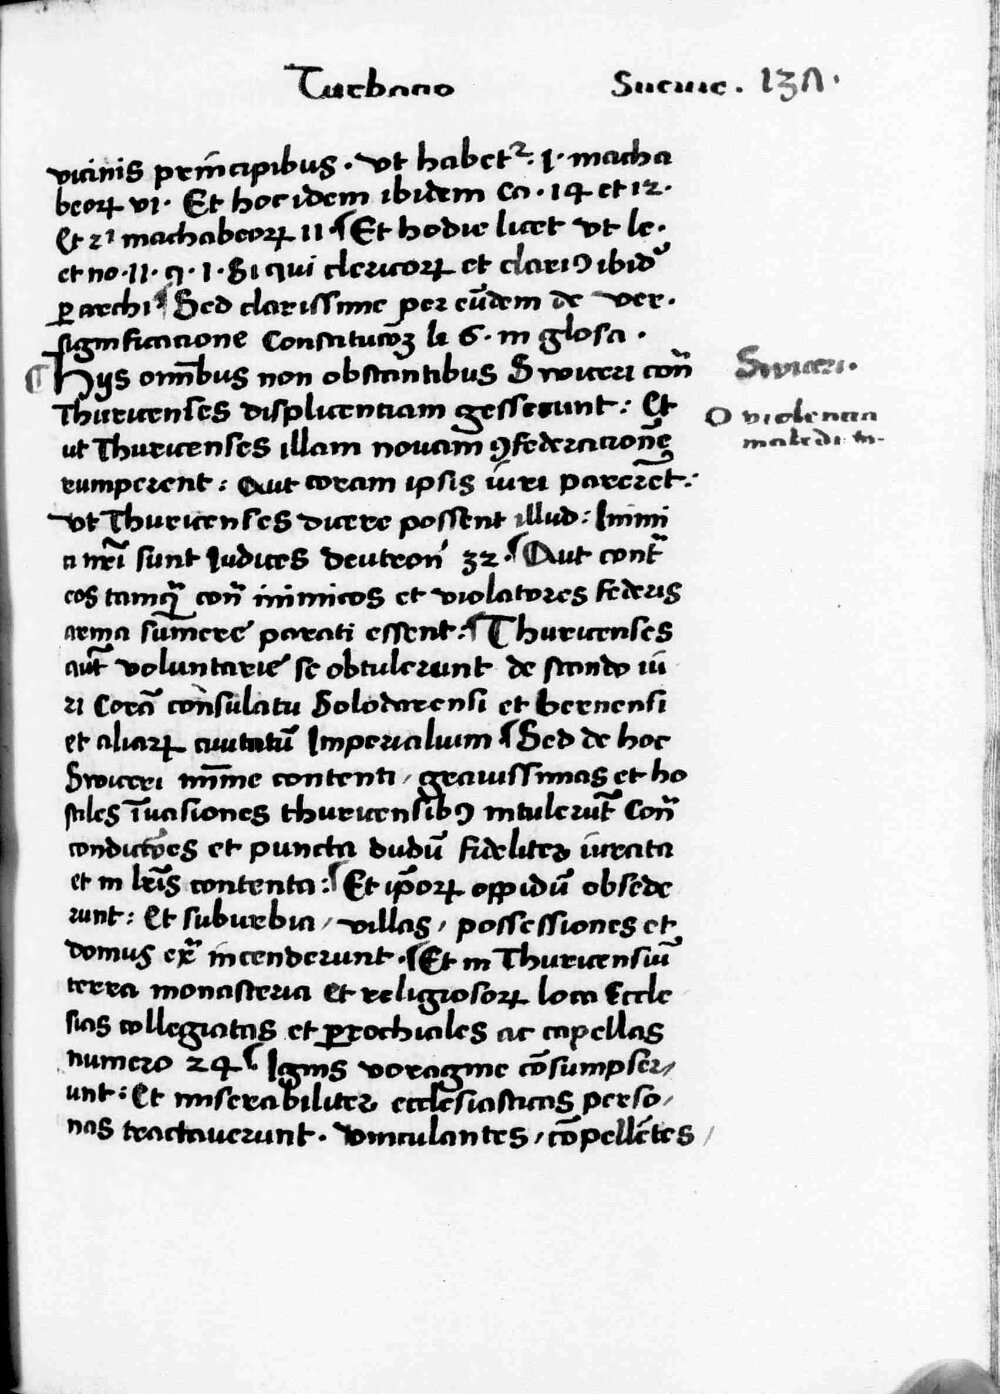 Turbacio Sueuie. 137.
vicinis prin̄cipibus. vt habetᷣ. 1. macha
beoꝝ vi. Et hoc idem ibidem Ca. 14 et 12.
Et 21 machabeoꝝ 11. Et hodie licet vt le.
et no. 11. q. 1. Si qui clericoꝝ et clariꝯ ibid
ꝑ archi. Sed clarissime per eūdem de ver.
significacione Constitucōꝫ li 6. in glosa.
Hijs omībus non obstantibus Swiceri con̄
Swiceri.
Thuricenses displicentiam gesserunt: Et
O violencia
ut Thuricenses illam novam ꝯfederacionē
maledi
rumperent: Aut coram ipsis iuri parerēt:
vt Thuricenses dicere possent illud: Inimi
a nr̄i sunt Iudices deutron 32. Aut cont̄
eos tamq̄ con̄ inimicos et violatores federis
arma sūmere parati essent: Thuricenses
aūt voluntarie se obtulerunt de stando iu
ri Corā consulatu Solodorensi et bernensi
et aliaꝝ ciuitatū Imperialium. Sed de hoc
Swiceri mīme contenti, grauissimas et ho
stiles īuasiones thuricensibꝯ intulerūt Con̄
condictōes et puncta dudū fideliter iurata
et in lr̄is contenta: Et ip̄oꝝ oppidū obsede
runt: Et suburbia, villas, possessiones et
domus ex̄ incenderunt. Et in Thuricensiū
terra monasteria et religiosoꝝ loca Eccle
sias collegiatas et ꝑrochiales ac capellas
numero 24 Ignis voragine cōsumpser,
unt: Et miserabiliter ecclesiasticas perso,
nas tractauerunt. vinculantes, cōpellētes